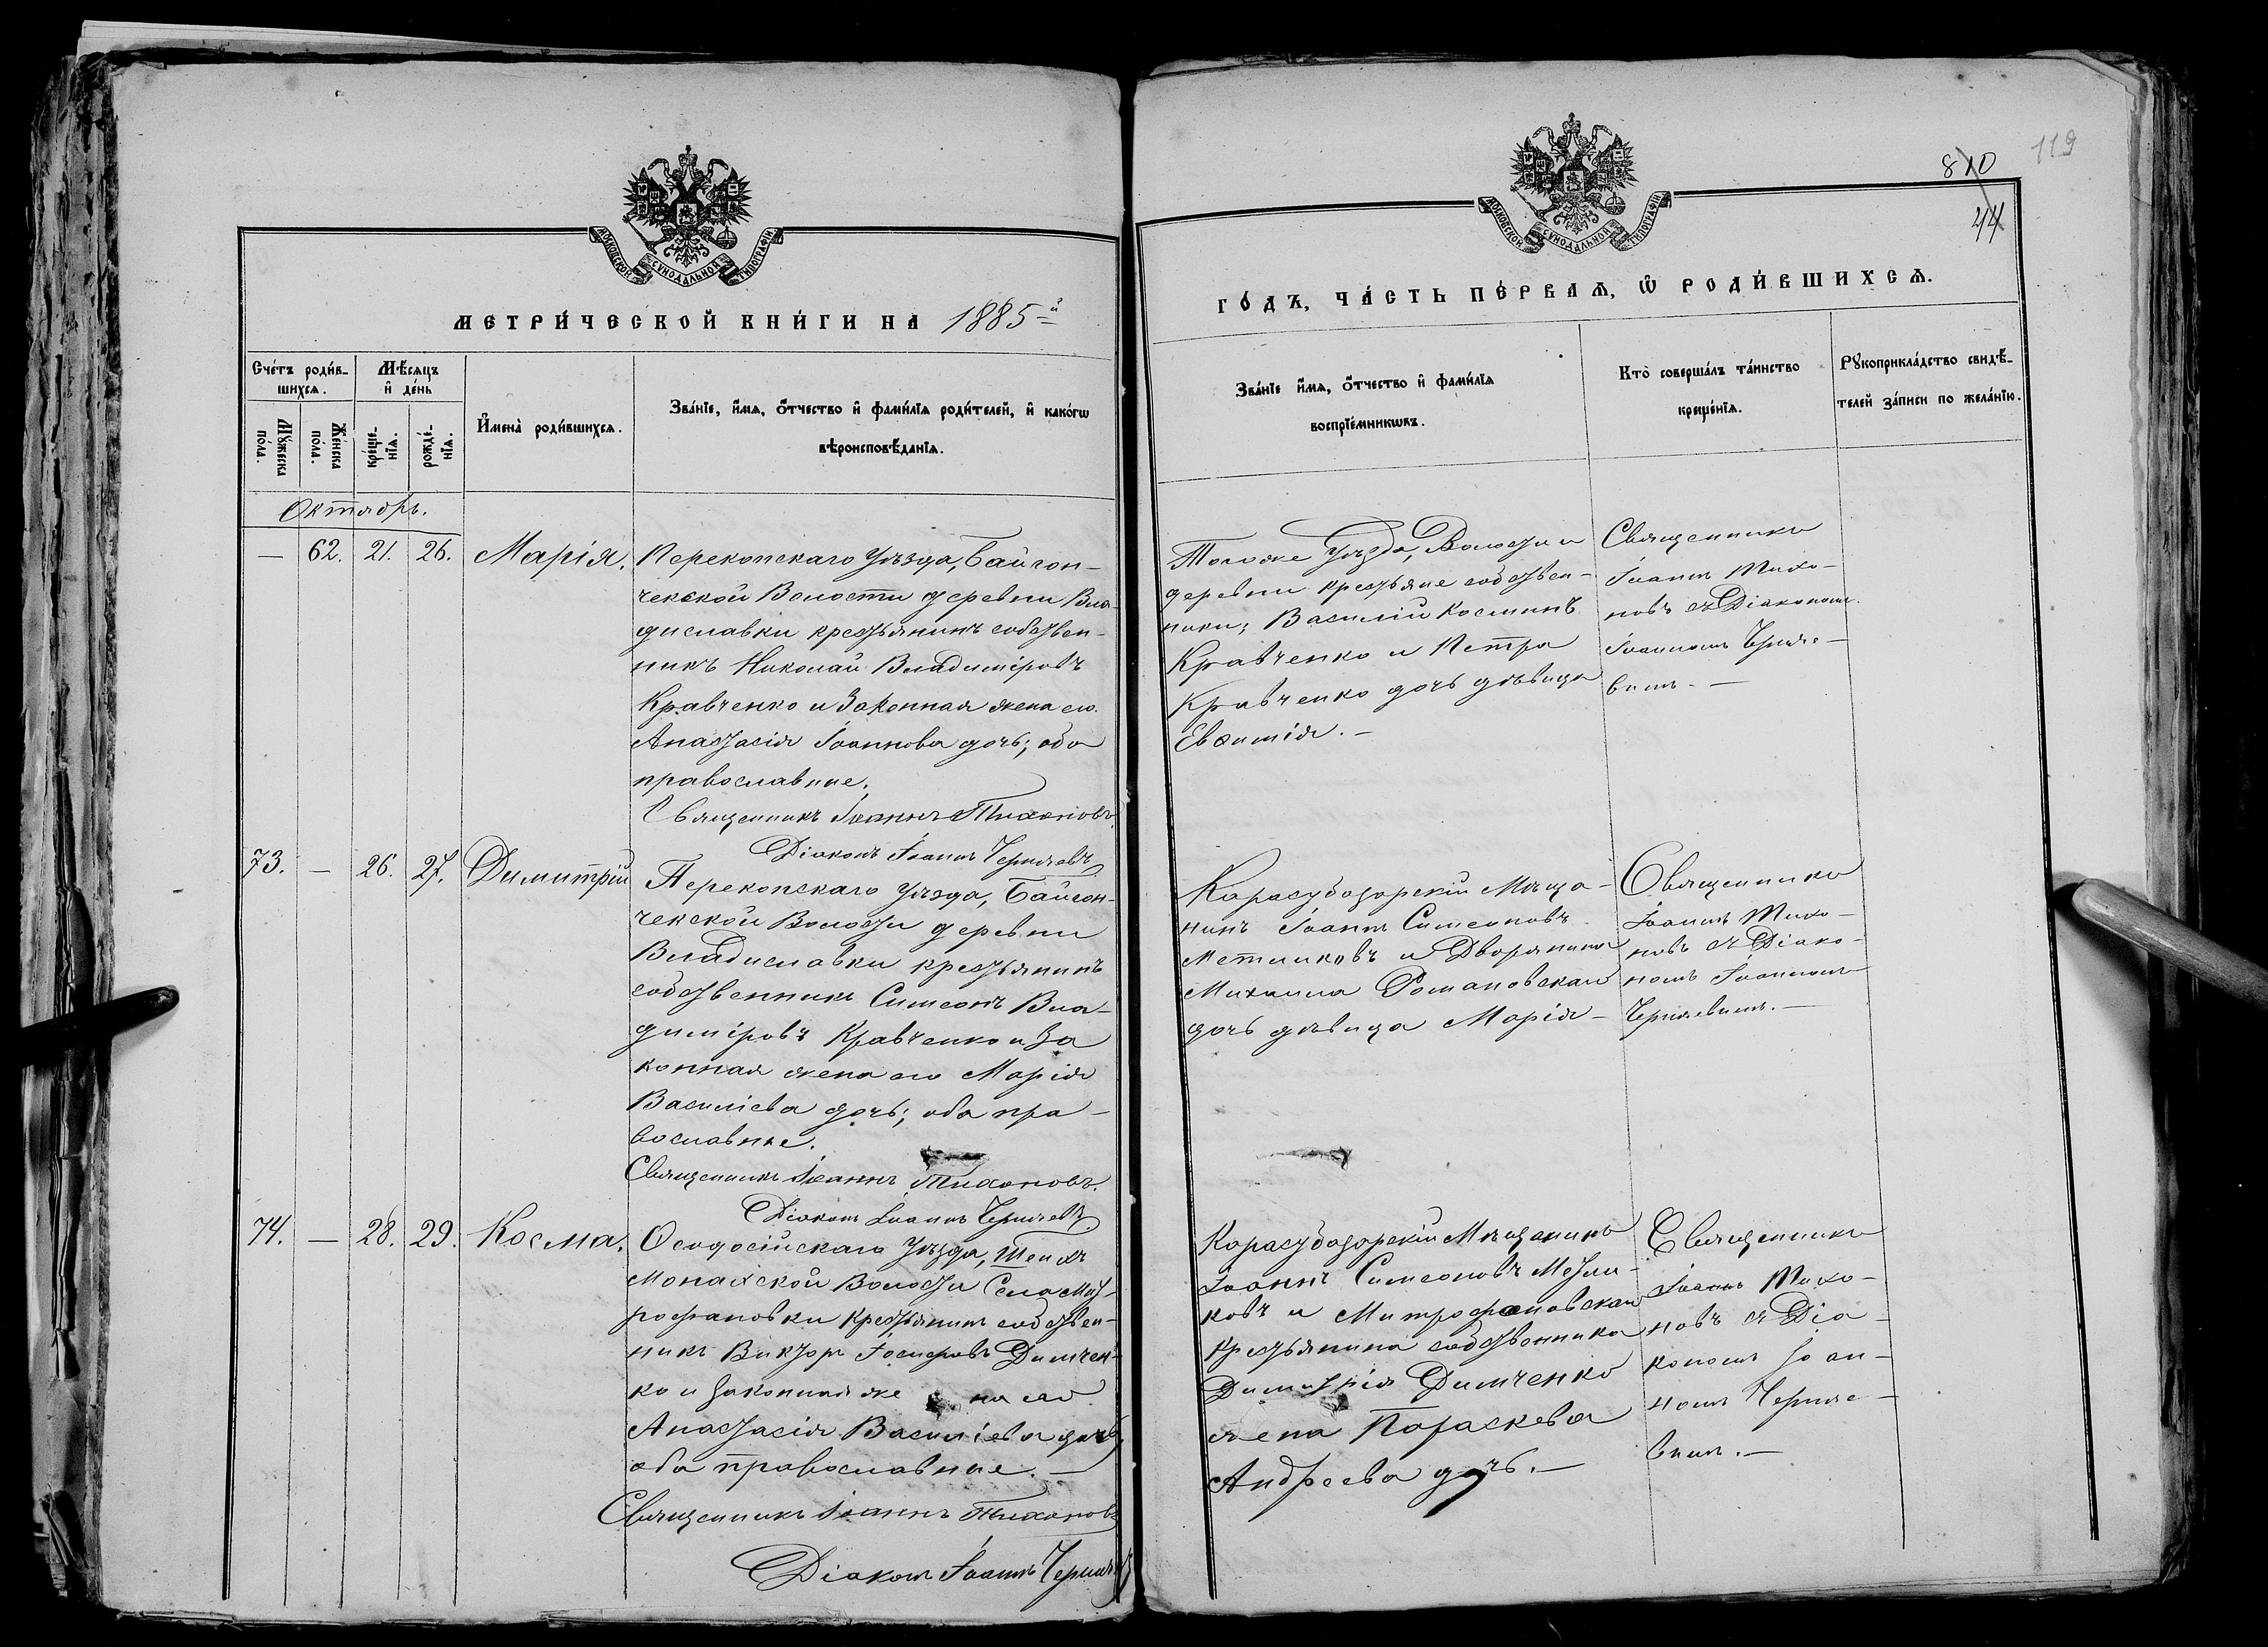 МОСКОВСКОЙ СѴНОДАЛЬНОЙ ТИПОГРАФІИ
МЕТРИ́ЧЕСКОЙ КНИ́ГИ НА 1885-й
Сче́тъ роди́в-
шихсѧ.
Мꙋ́жеска
по́ла.
Же́нска
по́ла.
Мѣ́сѧцъ
и҆ де́нь
креще́-
нїѧ.
рожде́-
нїѧ.
И҆мена̀ роди́вшихсѧ.
Зва́нїе, и҆́мѧ, ѻ҆́тчество и҆ фами́лїѧ роди́телей, и҆ како́гѡ
вѣроисповѣ́данїѧ.
Октябрь.
— 62. 21. 26. Марія.
Перекопскаго Уѣзда, Байгон-
чекской Волости деревни Вла-
диславки крестьянинъ собствен-
никъ Николай Владиміровъ
Кравченко и Законная жена его
Анастасія Іоаннова дочь; оба
православные.
Священникъ Іоаннъ Тихоновъ.
Діаконъ Іоаннъ Черняевъ
73. — 26. 27. Димитрій
Перекопскаго Уѣзда, Байгон-
чекской Волости деревни
Владиславки крестьянинъ
собственникъ Симеонъ Вла-
диміровъ Кравченко и За
конная жена его Марія
Василіева дочь; оба пра-
вославные.
Священникъ Іоаннъ Тихоновъ.
Діаконъ Іоаннъ Черняевъ
74. — 28. 29. Косма.
Ѳеодосійскаго Уѣзда, Шейхъ
Монахской Волости Села Мит-
рофановки Крестьянинъ собствен-
никъ Викторъ Димчен-
ко и Законная же на его
Анастасія Василіева дочь
оба православные. —
Священникъ Іоаннъ Тихоновъ
Діаконъ Іоаннъ Черняевъ
810
119
44
МОСКОВСКОЙ СѴНОДАЛЬНОЙ ТИПОГРАФІИ
ГО́ДЪ, ЧА́СТЬ ПЕ́РВАѦ, Ѡ҆ РОДИ́ВШИХСѦ.
Зва́нїе и҆́мѧ, ѻ҆́тчество и҆ фами́лїѧ
воспрїе́мникѡвъ.
Кто̀ соверша́лъ та́инство
креще́нїѧ.
Рꙋкоприкла́дство свидѣ́-
телей за́писи по жела́нїю.
Тогоже Уѣзда, Волости и
деревни крестьяне собствен-
ники; Василій Косминъ
Кравченко и Петра
Кравченко дочь дѣвица
Евѳимія. —
Священникъ
Іоаннъ Тихо-
новъ съ Діакономъ
Іоанномъ Черняе-
вымъ. —
Карасубазарскій Мѣща-
нинъ Іоаннъ Симеоновъ
Метликовъ и Дворянина
Михаила Романовскаго
дочь дѣвица Марія —
Священникъ
Іоаннъ Тихо-
новъ съ Діако-
номъ Іоанномъ
Черняевымъ. —
Карасубазарскій Мѣщанинъ
Іоаннъ Симеоновъ Метли-
ковъ и Митрофановскаго
крестьянина собственника
Димитрія Димченко
жена Параскева
Андреева дочь. —
Священникъ
Іоаннъ Тихо-
новъ съ Діа-
кономъ Іоан-
номъ Черняе-
вымъ. —